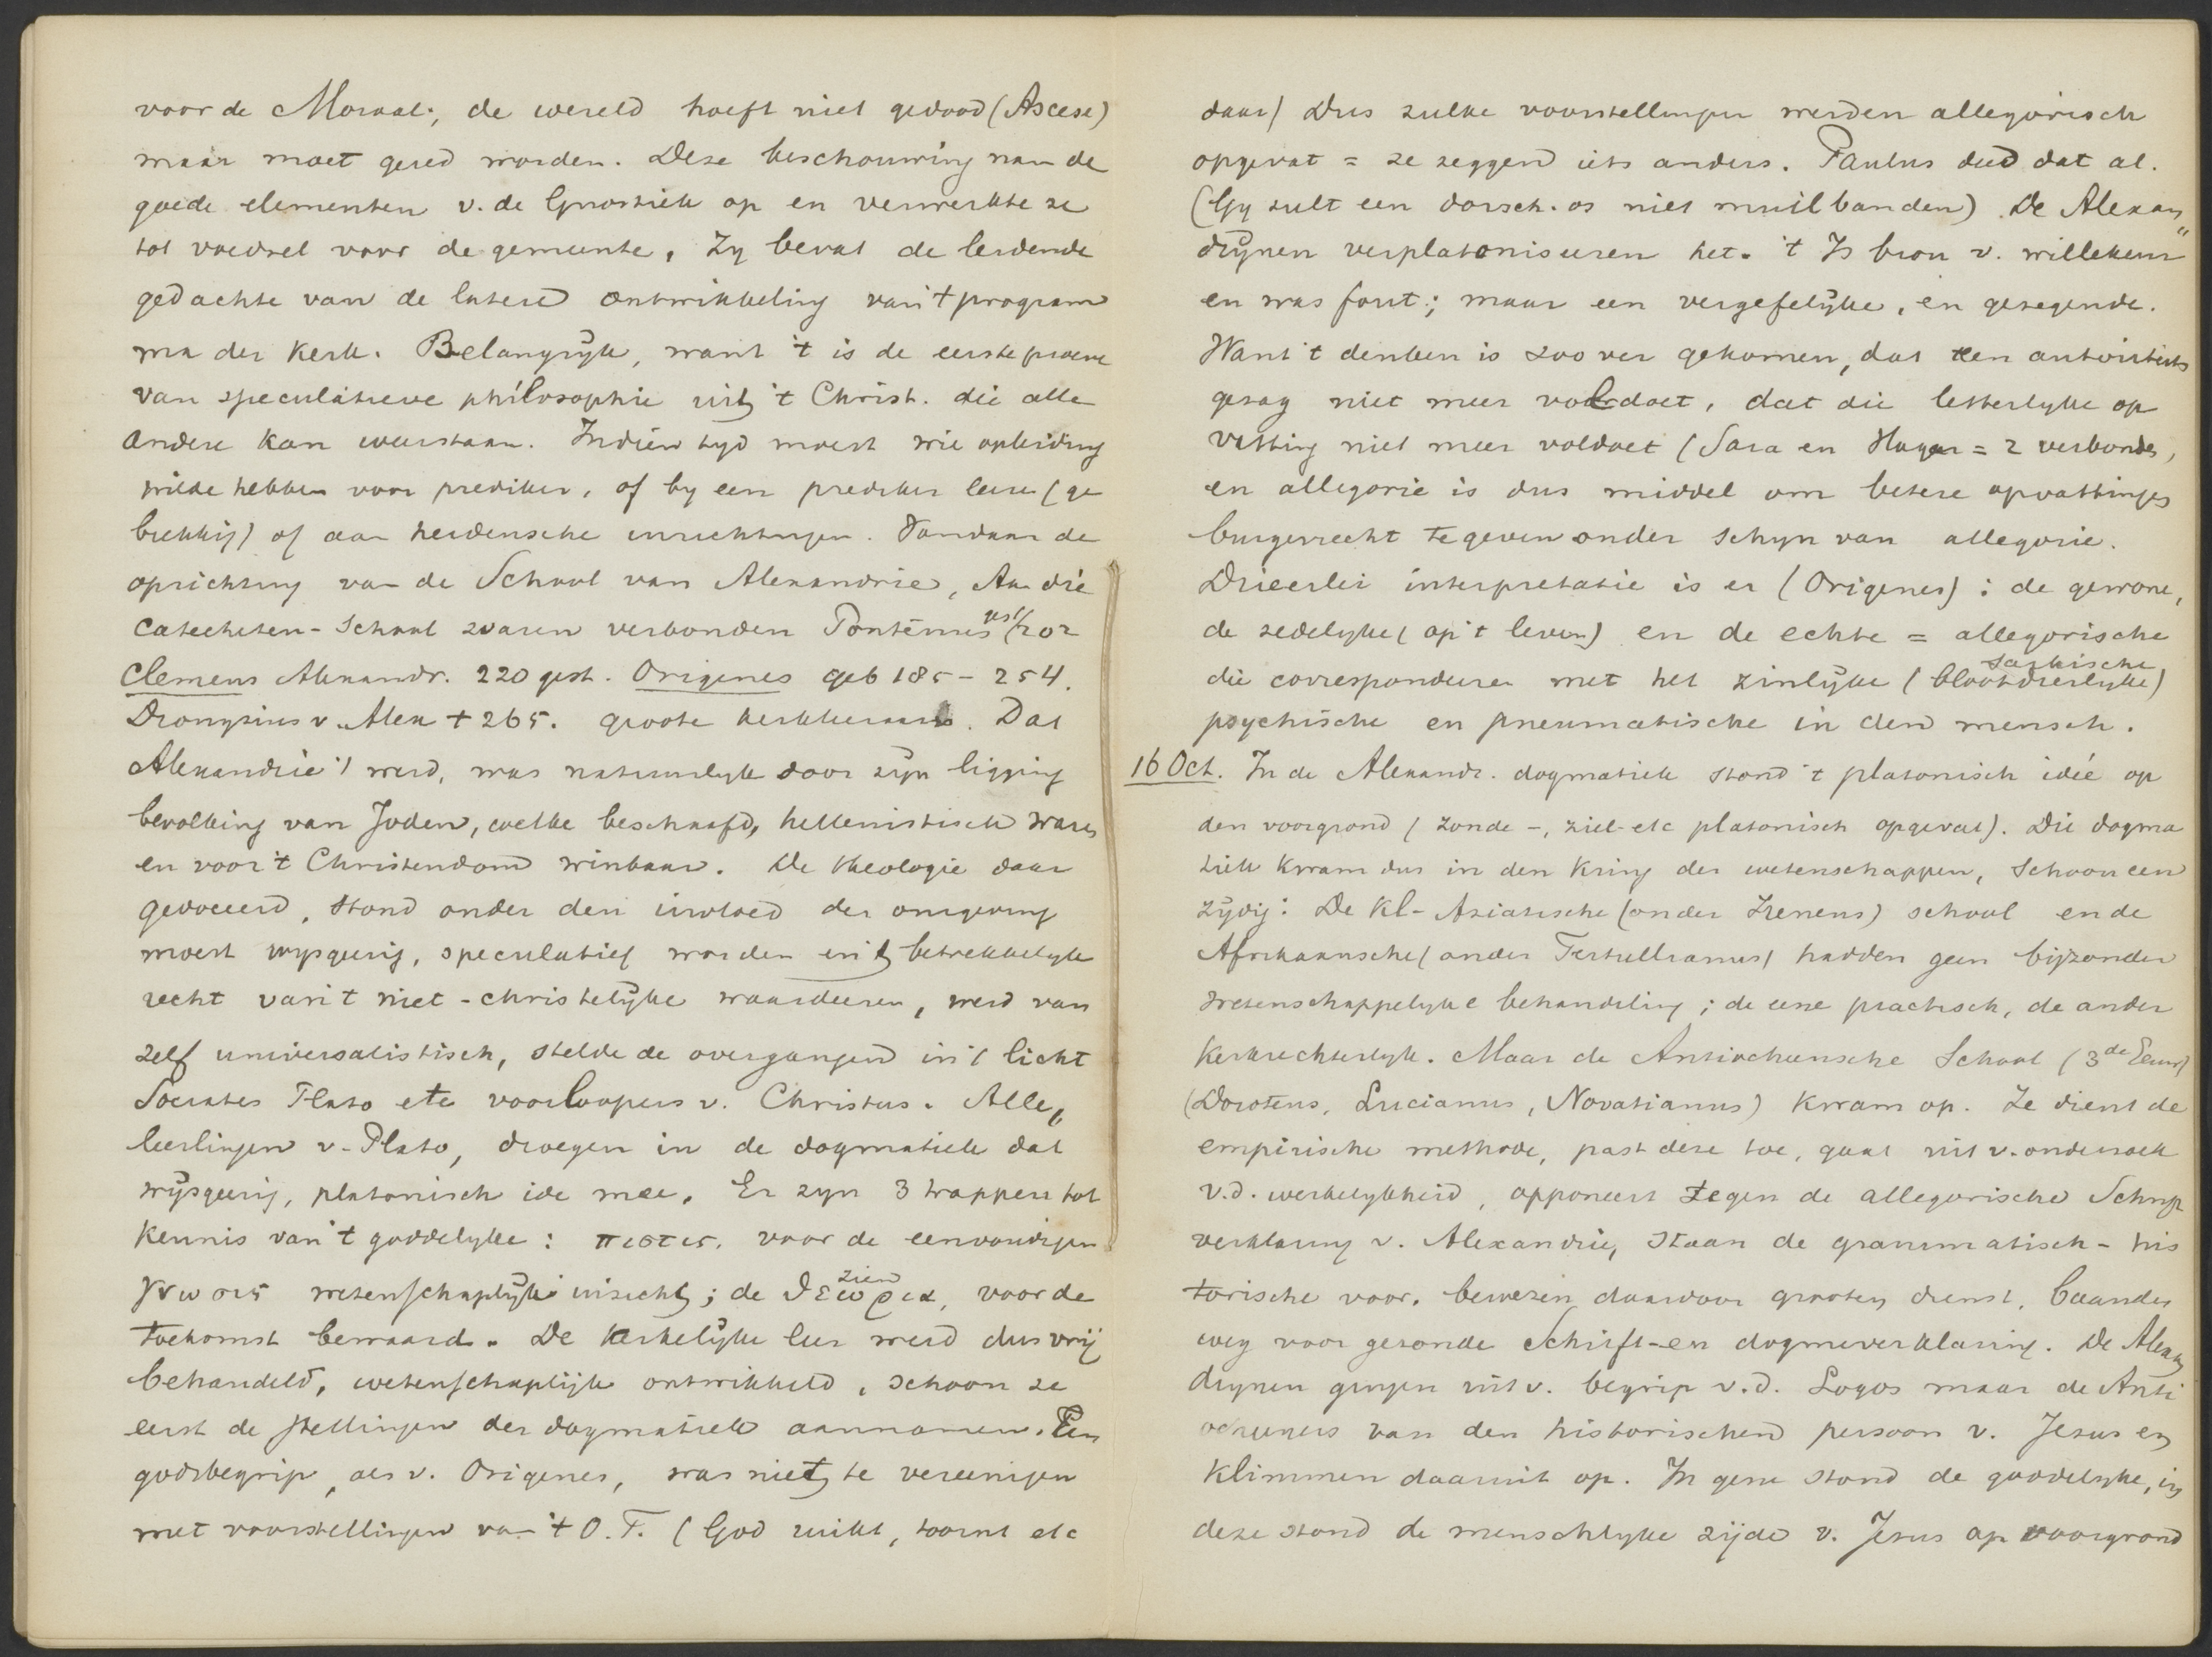 voor de Moraal; de wereld hoeft niet gedood (Ascese)
maar moet gered worden. Deze beschouwing nam de
goede elementen v. de Gnostiek op en verwerkte ze
tot voedsel voor de gemeente, Zy bevat de leidende
gedachte van de latere ontwikkeling van 't program
ma der Kerk. Belangryk, want 't is de eerste proeve
van speculatieve philosophie uit 't Christ. die alle
andere kan weerstaan. In dien tyd moest wie opleiding
wilde hebben voor prediker, of by een prediker leeren (ge
brekkig) of aan heidensche inrichtingen. Vandaar de
oprichting van de School van Alexandrie, Aan die
Catecheten-School waren verbonden Pantenus gest/202
Clemens Alexandr. 220 gest. Origenes geb 185 - 254.
Dionysius v. Alex + 265. groote kerkleeraars. Dat
Alexandrie 't werd, was natuurlyk door zyn ligging
bevolking van Joden, welke beschaafd, hellenistisch waren
en voor 't Christendom winbaar. De theologie daar
gedoceerd, stond onder den invloed der omgeving
moest wysgeerig, speculatief worden en 't betrekkelyk
recht van 't niet-christelyke waardeeren, werd van
zelf universalistisch, stelde de overgangen in 't licht
Socrates Plato etc voorloopers v. Christus. Alle,
leerlingen v. Plato, droegen in de dogmatiek dat
wysgeerig, platonisch idee mee. Er zyn 3 trappen tot
Kennis van 't goddelyke: πιστις, voor de eenvoudigen
γνωσις wetenschaplyk inzicht; de θεωρια, zien voor de
toekomst bewaard. De kerkelyke leer werd dus vrij
behandeld, wetenschaplijk ontwikkeld, schoon ze
eerst de stellingen der dogmatiek aannamen. Een
godsbegrip, als v. Origenes, was niet te vereenigen
met voorstellingen van 't O.T. (God ruikt, toornt etc
daar) Dus zulke voorstellingen werden allegorisch
opgevat = ze zeggen iets anders. Paulus deed dat al.
(Gy zult een dorsch. os niet muilbanden) De Alexan
drynen verplatoniseeren het. 't Is bron v. willekeur
en was fout; maar een vergefelyke, en gezegende.
Want 't denken is zoo ver gekomen, dat een autoriteits
gezag niet meer voldoet, dat die letterlyke op
vatting niet meer voldoet (Sara en Hagar = 2 verbonden,
en allegorie is dus middel om betere opvattingen
burgerrecht te geven onder schyn van allegorie.
Drieerlei interpretatie is er (Origenes): de gewone,
de zedelyke (op 't leven) en de echte = allegorische
die correspondeeren met het zinlyke (bloot dierlyke) sarkische
psychische en pneumatische in den mensch.
16 Oct. In de Alexandr. dogmatiek stond 't platonisch idée op
den voorgrond (zonde -, ziel- etc platonisch opgevat). Die dogma
tiek kwam dus in den Kring der wetenschappen, schoon een
zydig: De Kl-Aziatische (onder Irenens) school en de
Afrikaansche (onder Tertullianus) hadden geen bijzonder
wetenschappelyke behandeling; de eene practisch, de ander
kerkrechterlyk. Maar de Antiocheensche School (3de Eeuw)
(Doroteus, Lucianus, Novatianus) kwam op. Ze dient de
empirische methode, past deze toe, gaat uit v. onderzoek
v.d. werkelykheid, opponeert tegen de allegorische Schrift
verklaring v. Alexandrie, staan de grammatisch-his
torische voor, bewezen daardoor grooten dienst, baanden
weg voor gezonde Schrift-en dogmeverklaring. De Alexan
drynen gingen uit v. begrip v.d. Logos maar de Anti
ocheners van den historischen persoon v. Jezus en
klimmen daaruit op. In gene stond de goddelyke, in
deze stond de menschlyke zijde v. Jezus op voorgrond